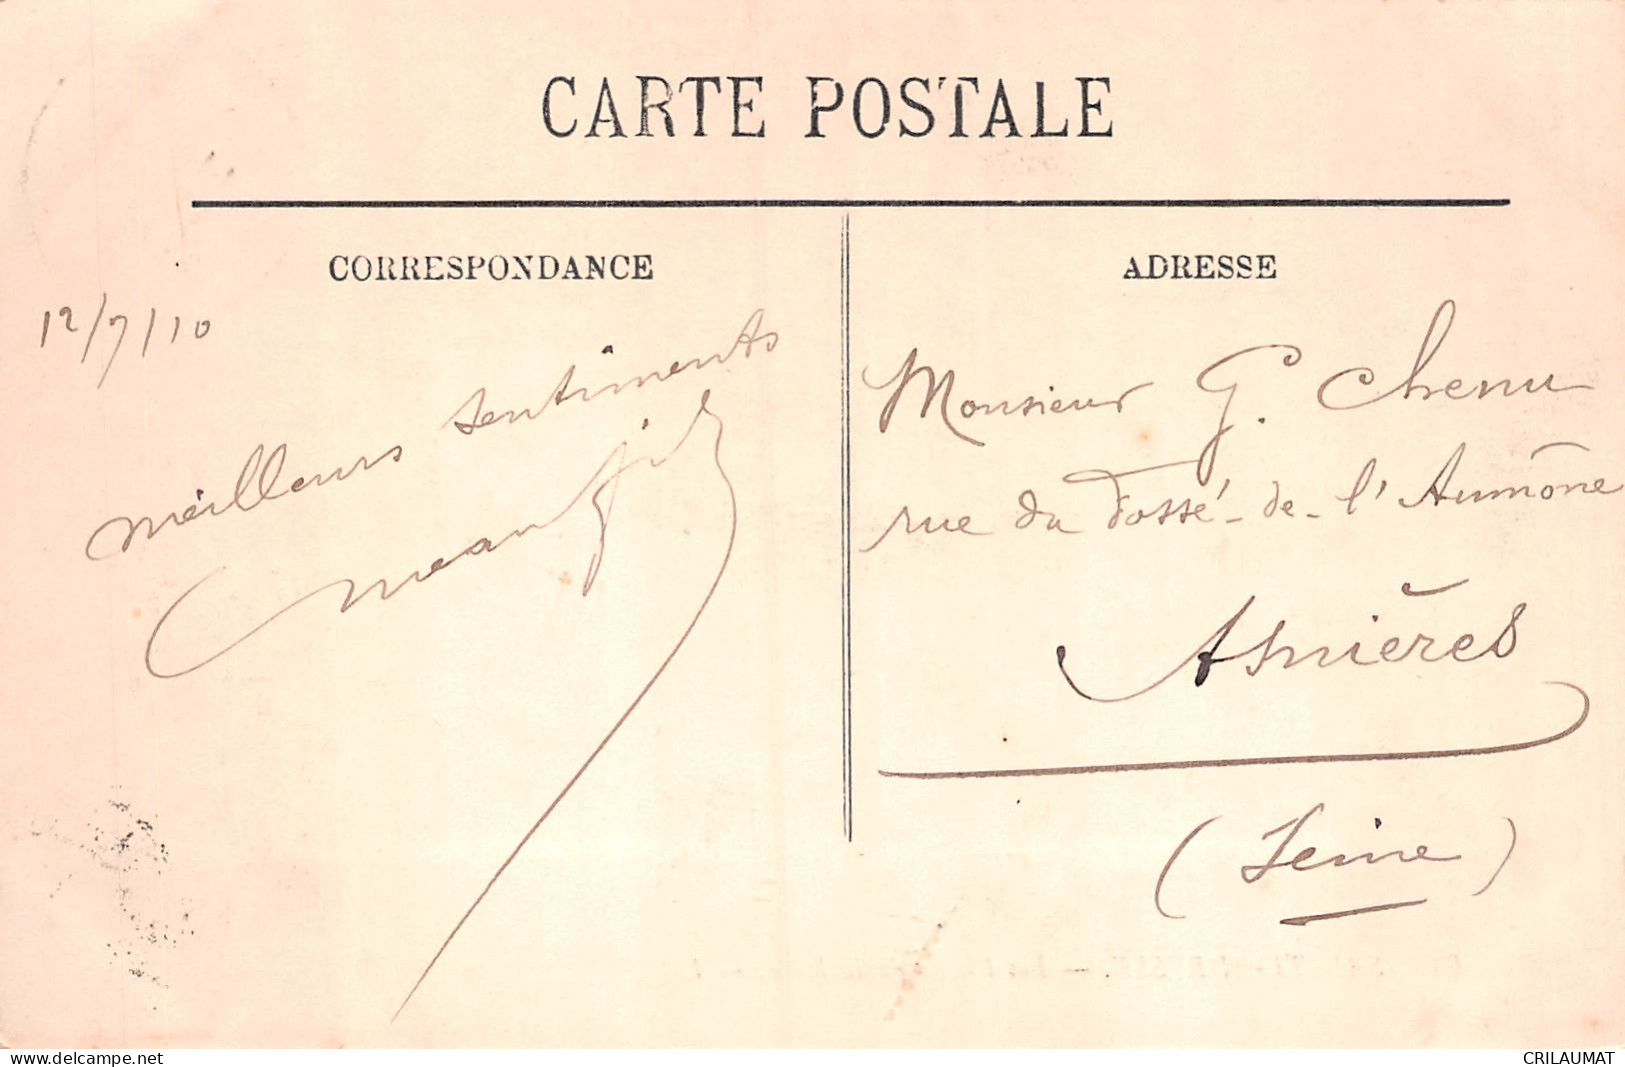 CARTE POSTALE
CORRESPONDANCE
12/7/10
meilleurs sentiments
ADRESSE
Monsieur G. Chenu
rue du Fossé-de-l'Aumône
Asnières
(Seine)
www.delcampe.net
CRILAUMAT